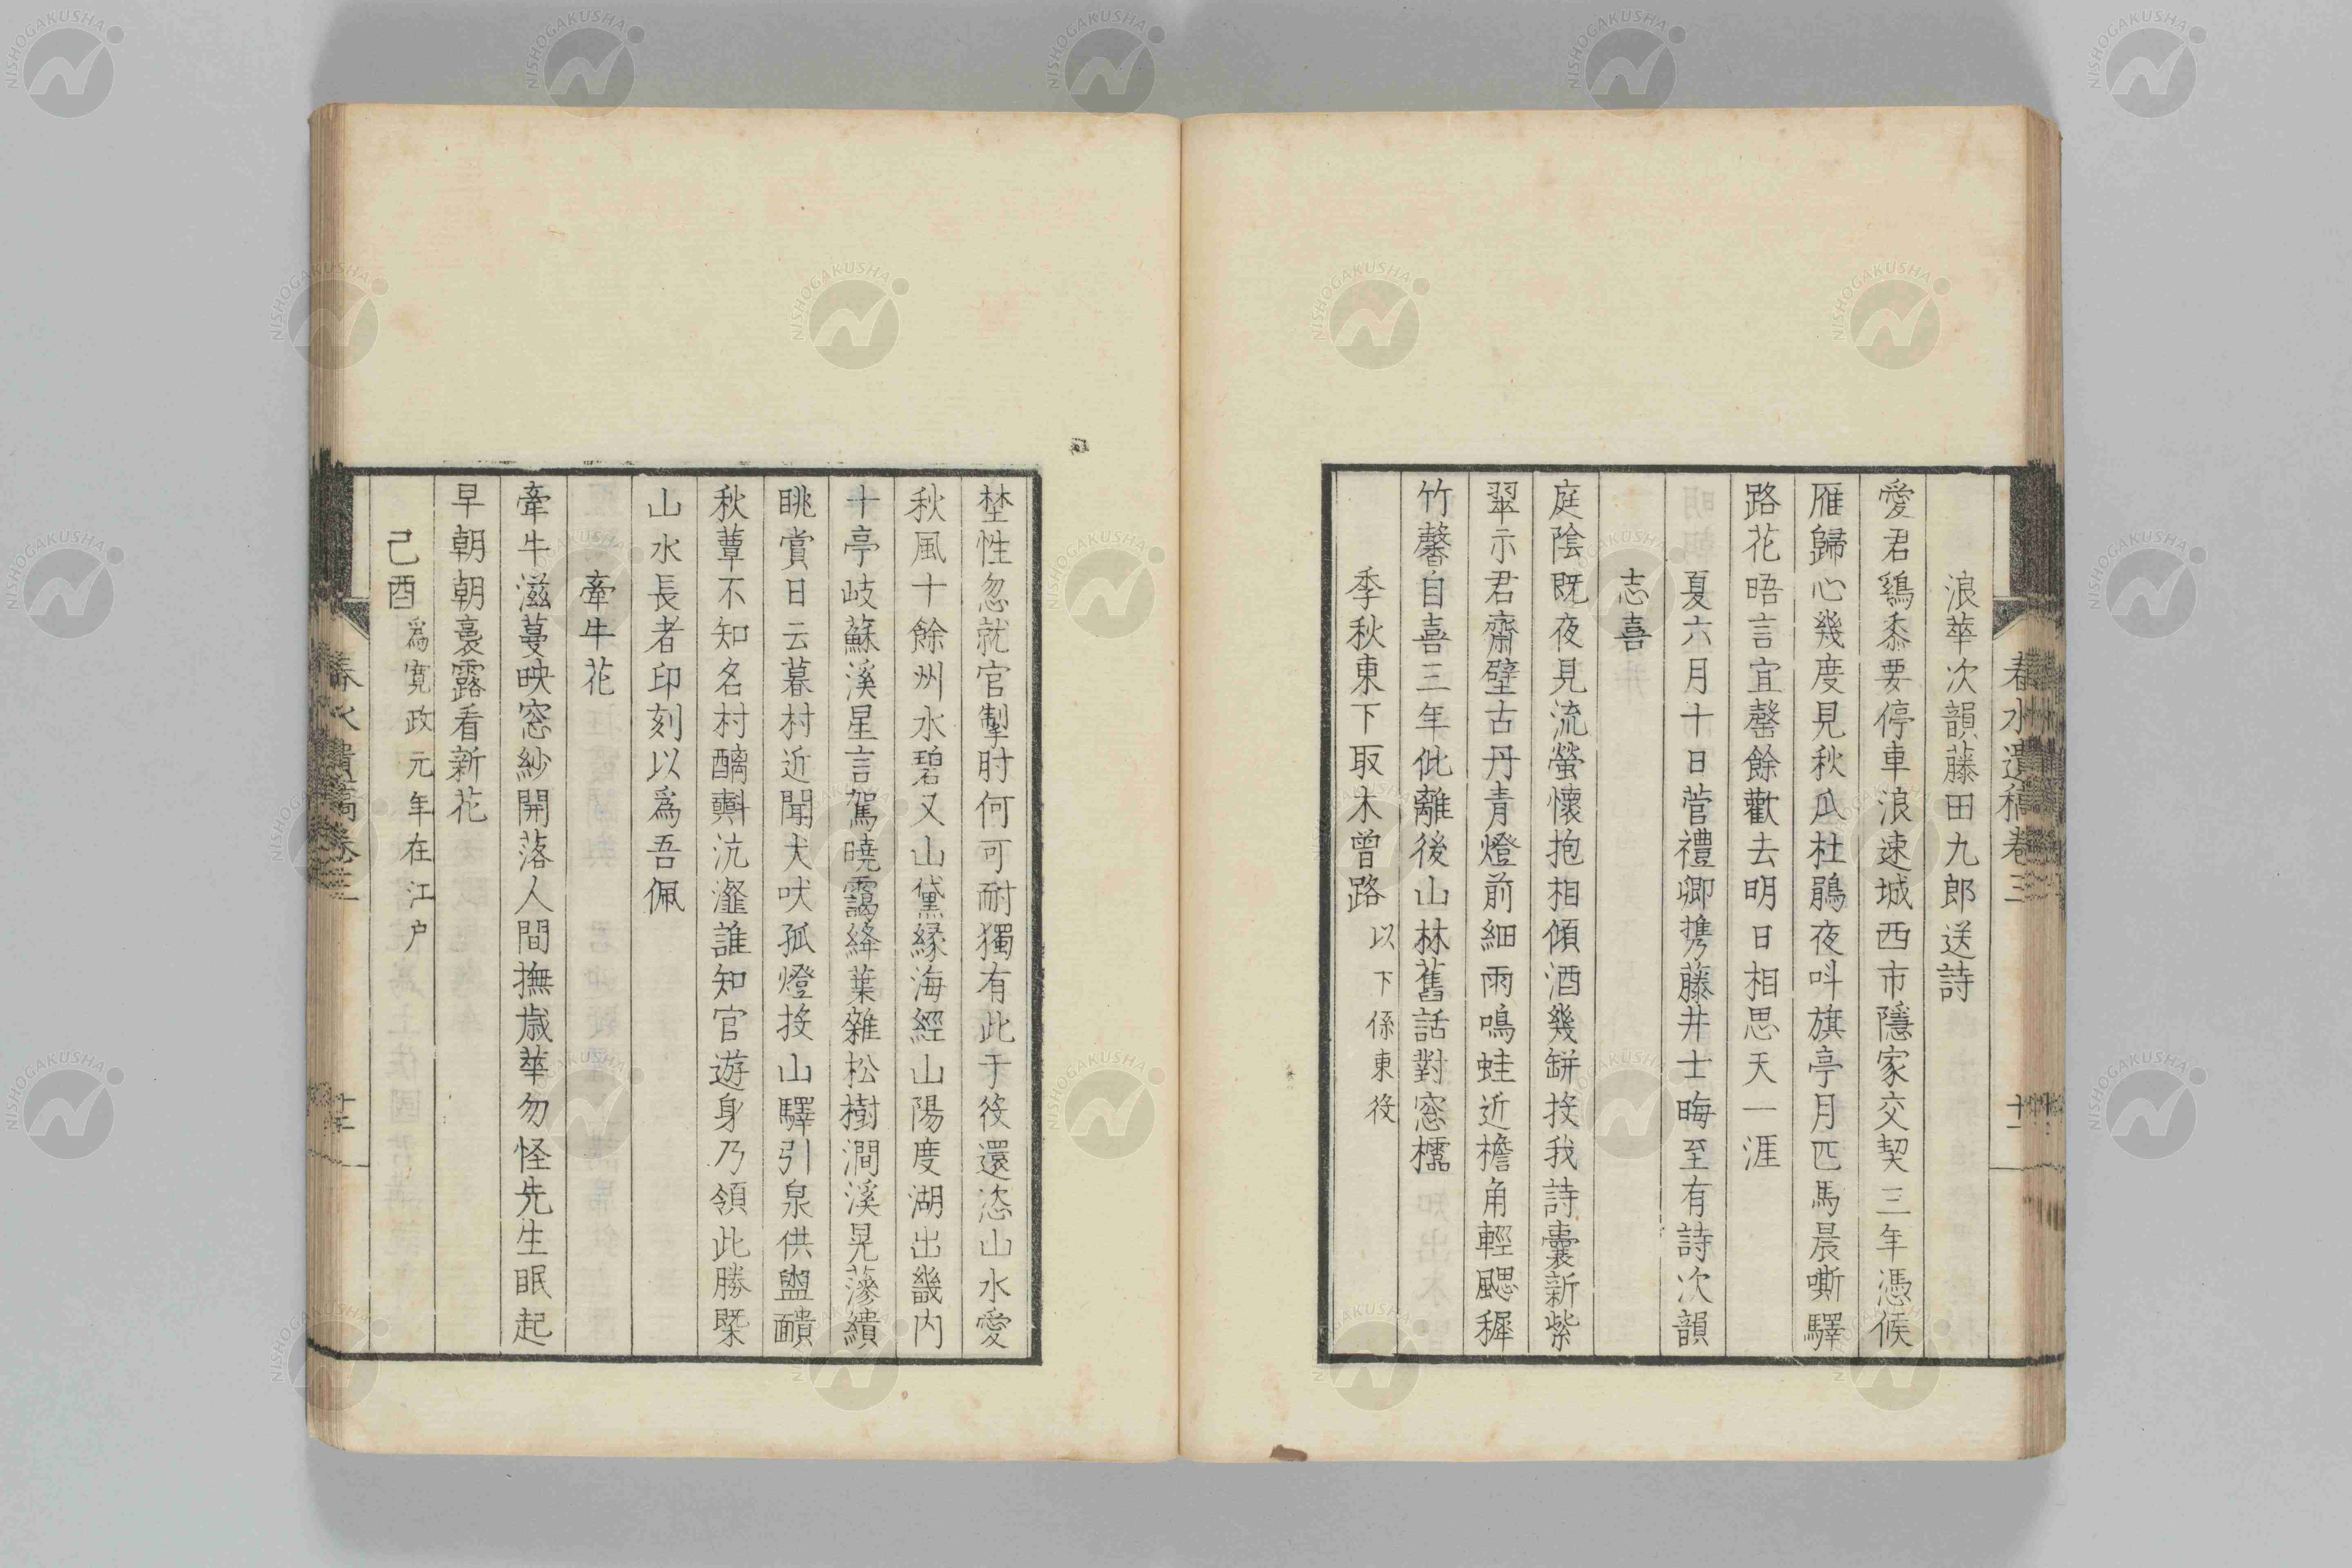 春水遺稿卷三
十一
浪華次韻藤田九郎送詩
愛君鷄黍要停車浪速城西市隱家交契三年憑候
雁歸心幾度見秋瓜杜鵑夜叫旗亭月匹馬晨嘶驛
路花晤言宜罄餘歡去明日相思天一涯
夏六月十日菅禮卿携藤井士晦至有詩次韻
志喜
庭陰既夜見流螢懷抱相傾酒幾缾投我詩囊新紫
翠示君齋壁古丹青燈前細雨鳴蛙近檐角輕颸穉
竹馨自喜三年仳離後山林舊話對窓櫺
季秋東下取木曾路以下係東役
埜性忽就官掣肘何可耐獨有此于役還恣山水愛
秋風十餘州水碧又山黛緣海經山陽度湖出畿内
十亭岐蘇溪星言駕曉靄絳葉雜松樹澗溪晃蔘繢
眺賞日云暮村近聞犬吠孤燈投山驛引泉供盥靧
秋蕈不知名村醨㪺沆瀣誰知官遊身乃領此勝槩
山水長者印刻以爲吾佩
牽牛花
牽牛滋蔓映窓紗開落人間撫歲華勿怪先生眠起
早朝朝裛露看新花
己酉爲寬政元年在江户
春水遺稿卷三